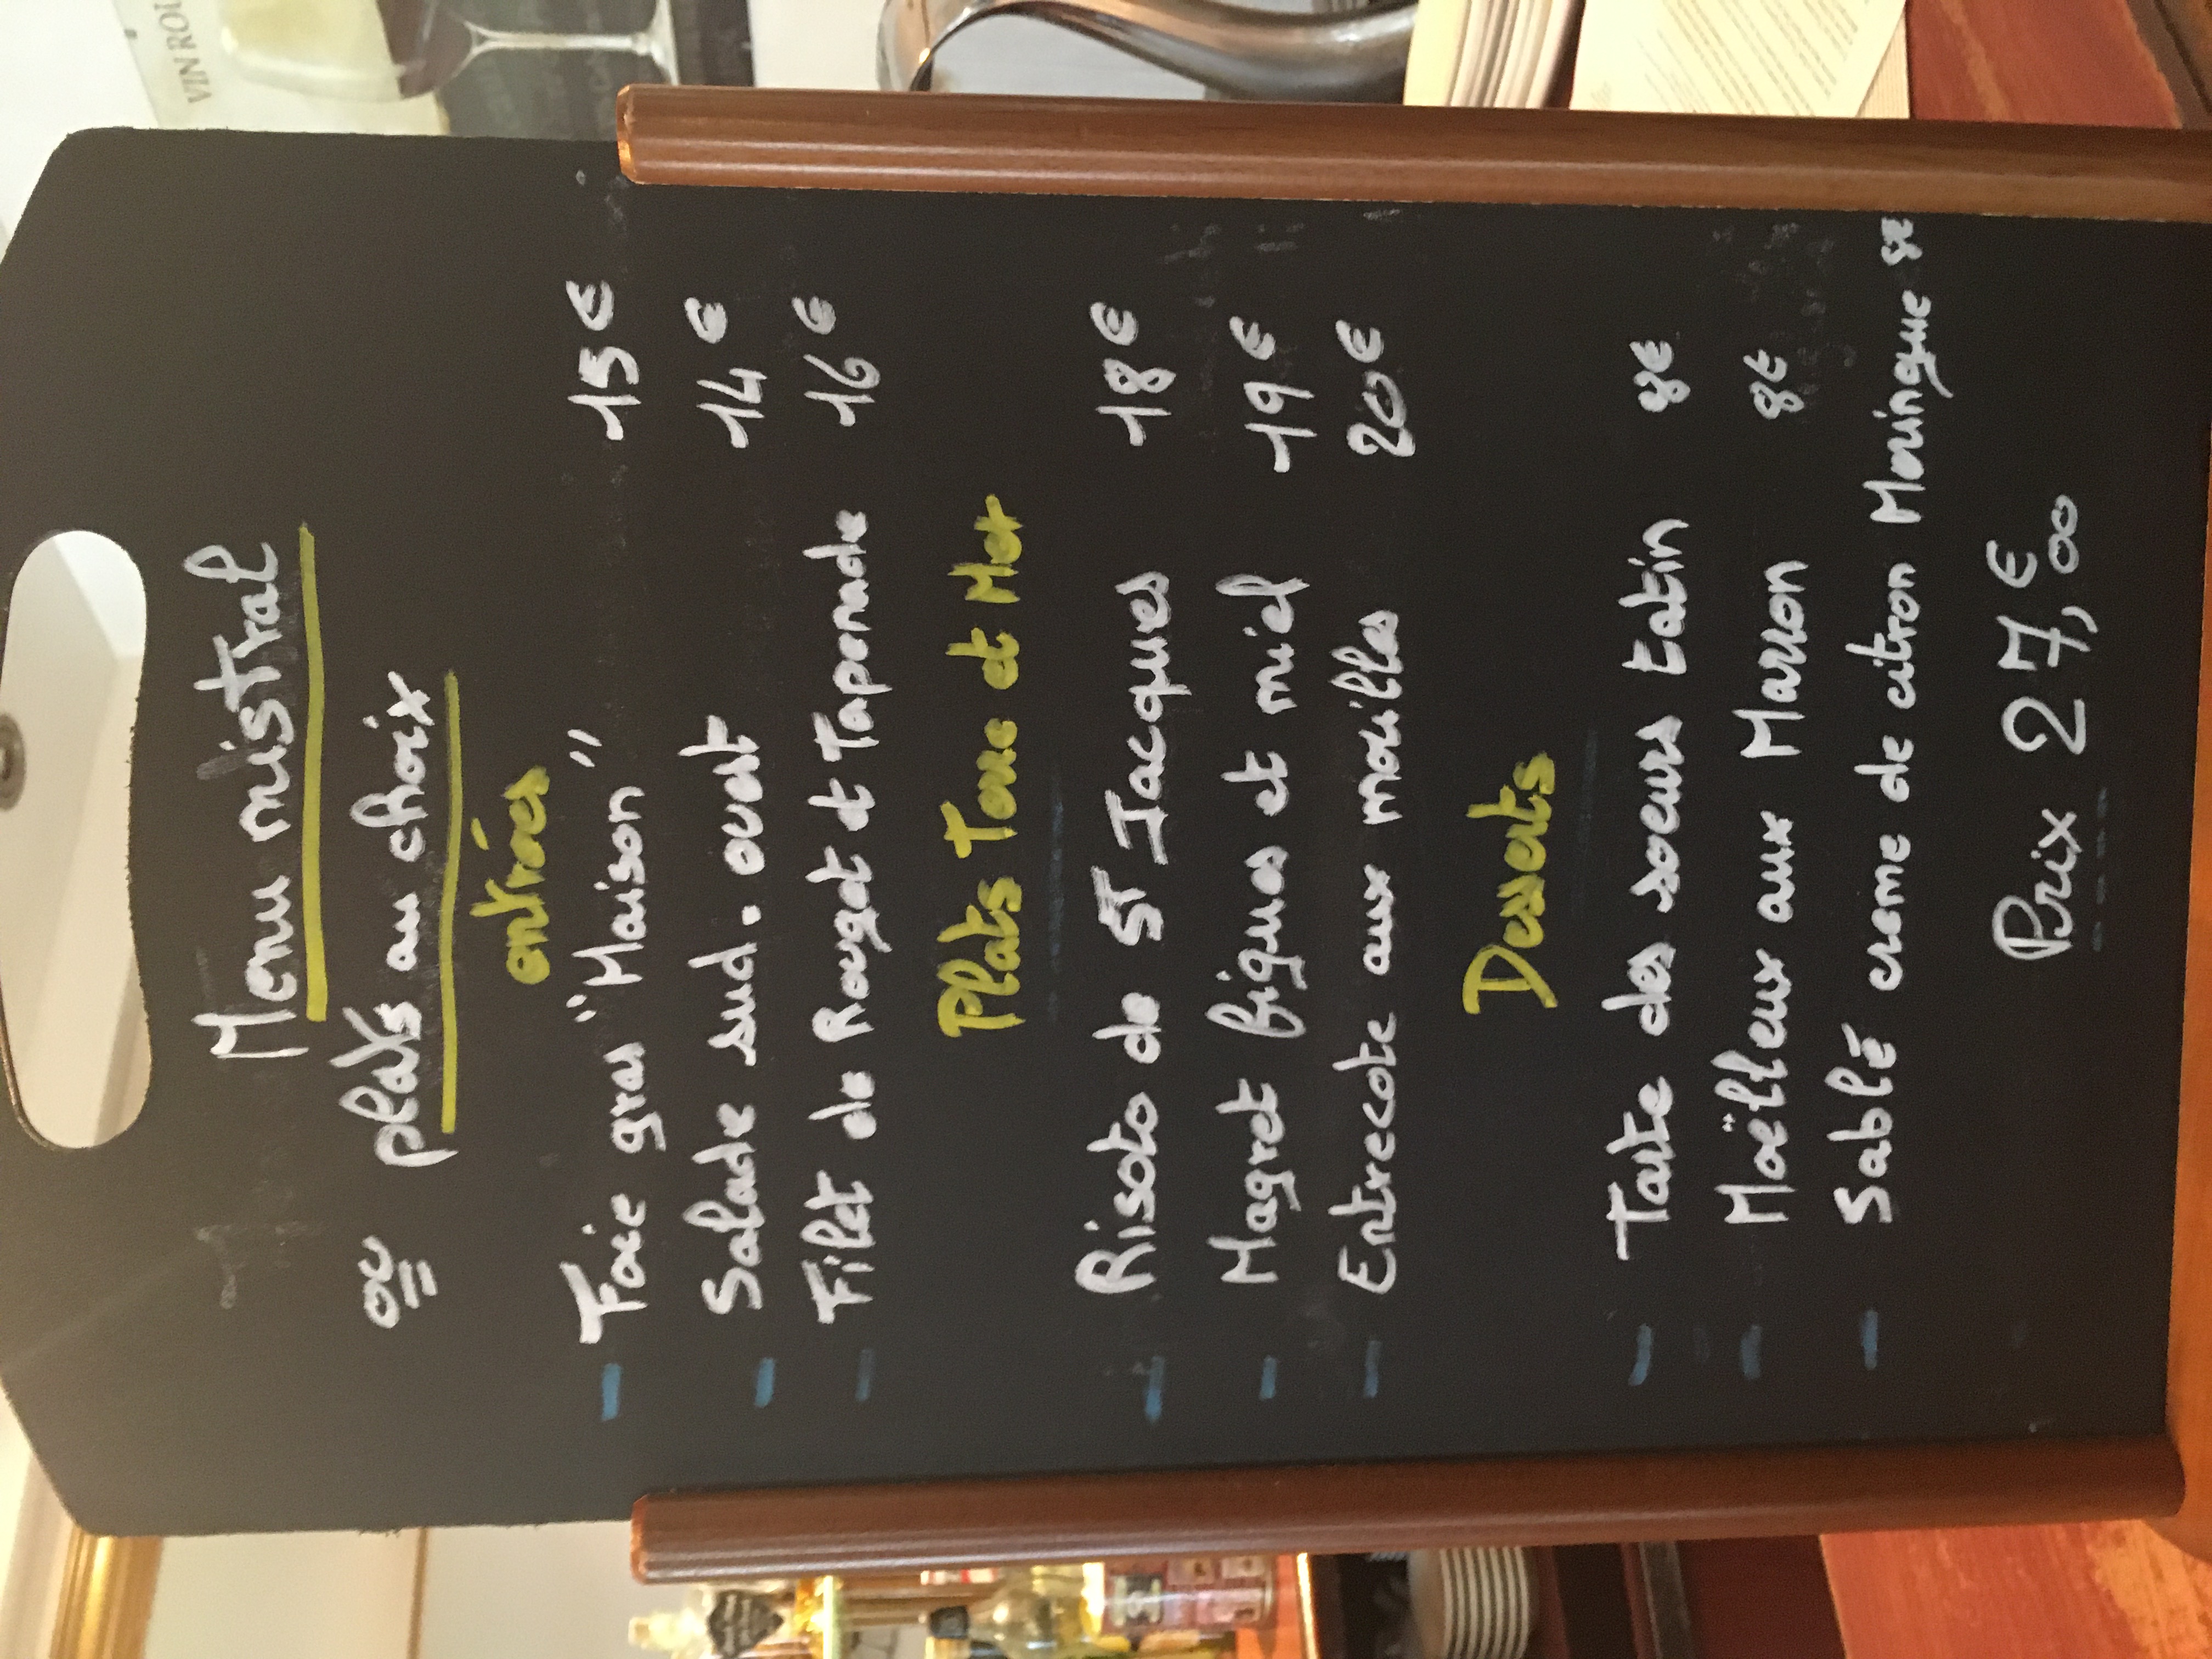 Menu mistral
ou plats au choix
entrées
Foie gras "Maison" 15 €
Salade sud. ouest 14 €
Filet de Rouget et Taponade 16 €
Plats Terre et Mer
Risoto de ST Jacques 18 €
Magret figues et miel 19 €
Entrecote aux morilles 20 €
Desserts
Tarte des soeurs tatin 8€
Moëlleux aux Marron 8€
Sablé creme de citron Meringue 8€
Prix 27,00 €
VIN ROU